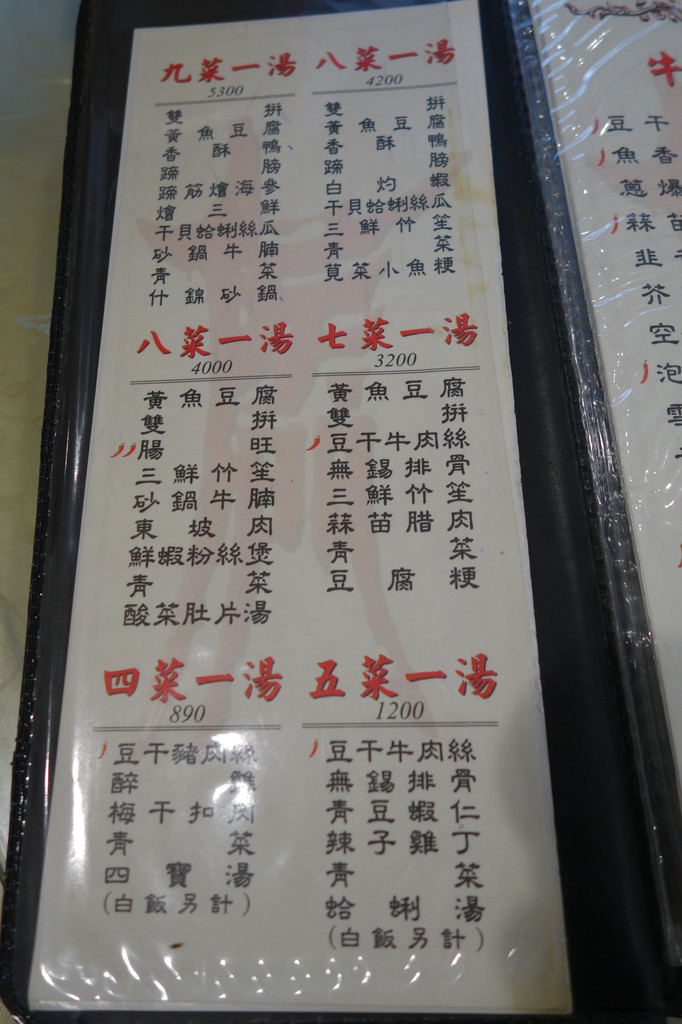 九菜一湯
5300
雙拼
黃魚豆腐
香酥鴨
蹄膀
蹄筋燴海參
燴三鮮
干貝蛤蜊絲瓜
砂鍋牛腩
青菜
什錦砂鍋
八菜一湯
4200
雙拼
黃魚豆腐
香酥鴨
蹄膀
白灼蝦
干貝蛤蜊絲瓜
三鮮竹笙
青菜
莧菜小魚粳
八菜一湯
4000
黃魚豆腐
雙拼
腸旺
三鮮竹笙
砂鍋牛腩
東坡肉
鮮蝦粉絲煲
青菜
酸菜肚片湯
七菜一湯
3200
黃魚豆腐
雙拼
豆干牛肉絲
無錫排骨
三鮮竹笙
蒜苗腊肉
青菜
豆腐粳
四菜一湯
890
豆干豬肉絲
醉雞
梅干扣肉
青菜
四寶湯
(白飯另計)
五菜一湯
1200
豆干牛肉絲
無錫排骨
青豆蝦仁
辣子雞丁
青菜
蛤蜊湯
(白飯另計)
牛
豆干
魚香
蔥爆
蒜苗
韭
芥
空
泡
雪